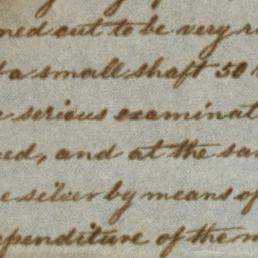 ned out to be very r
a small shaft 50
serious examinat
ed, and at the sa
e silver by means of
penditure of the m